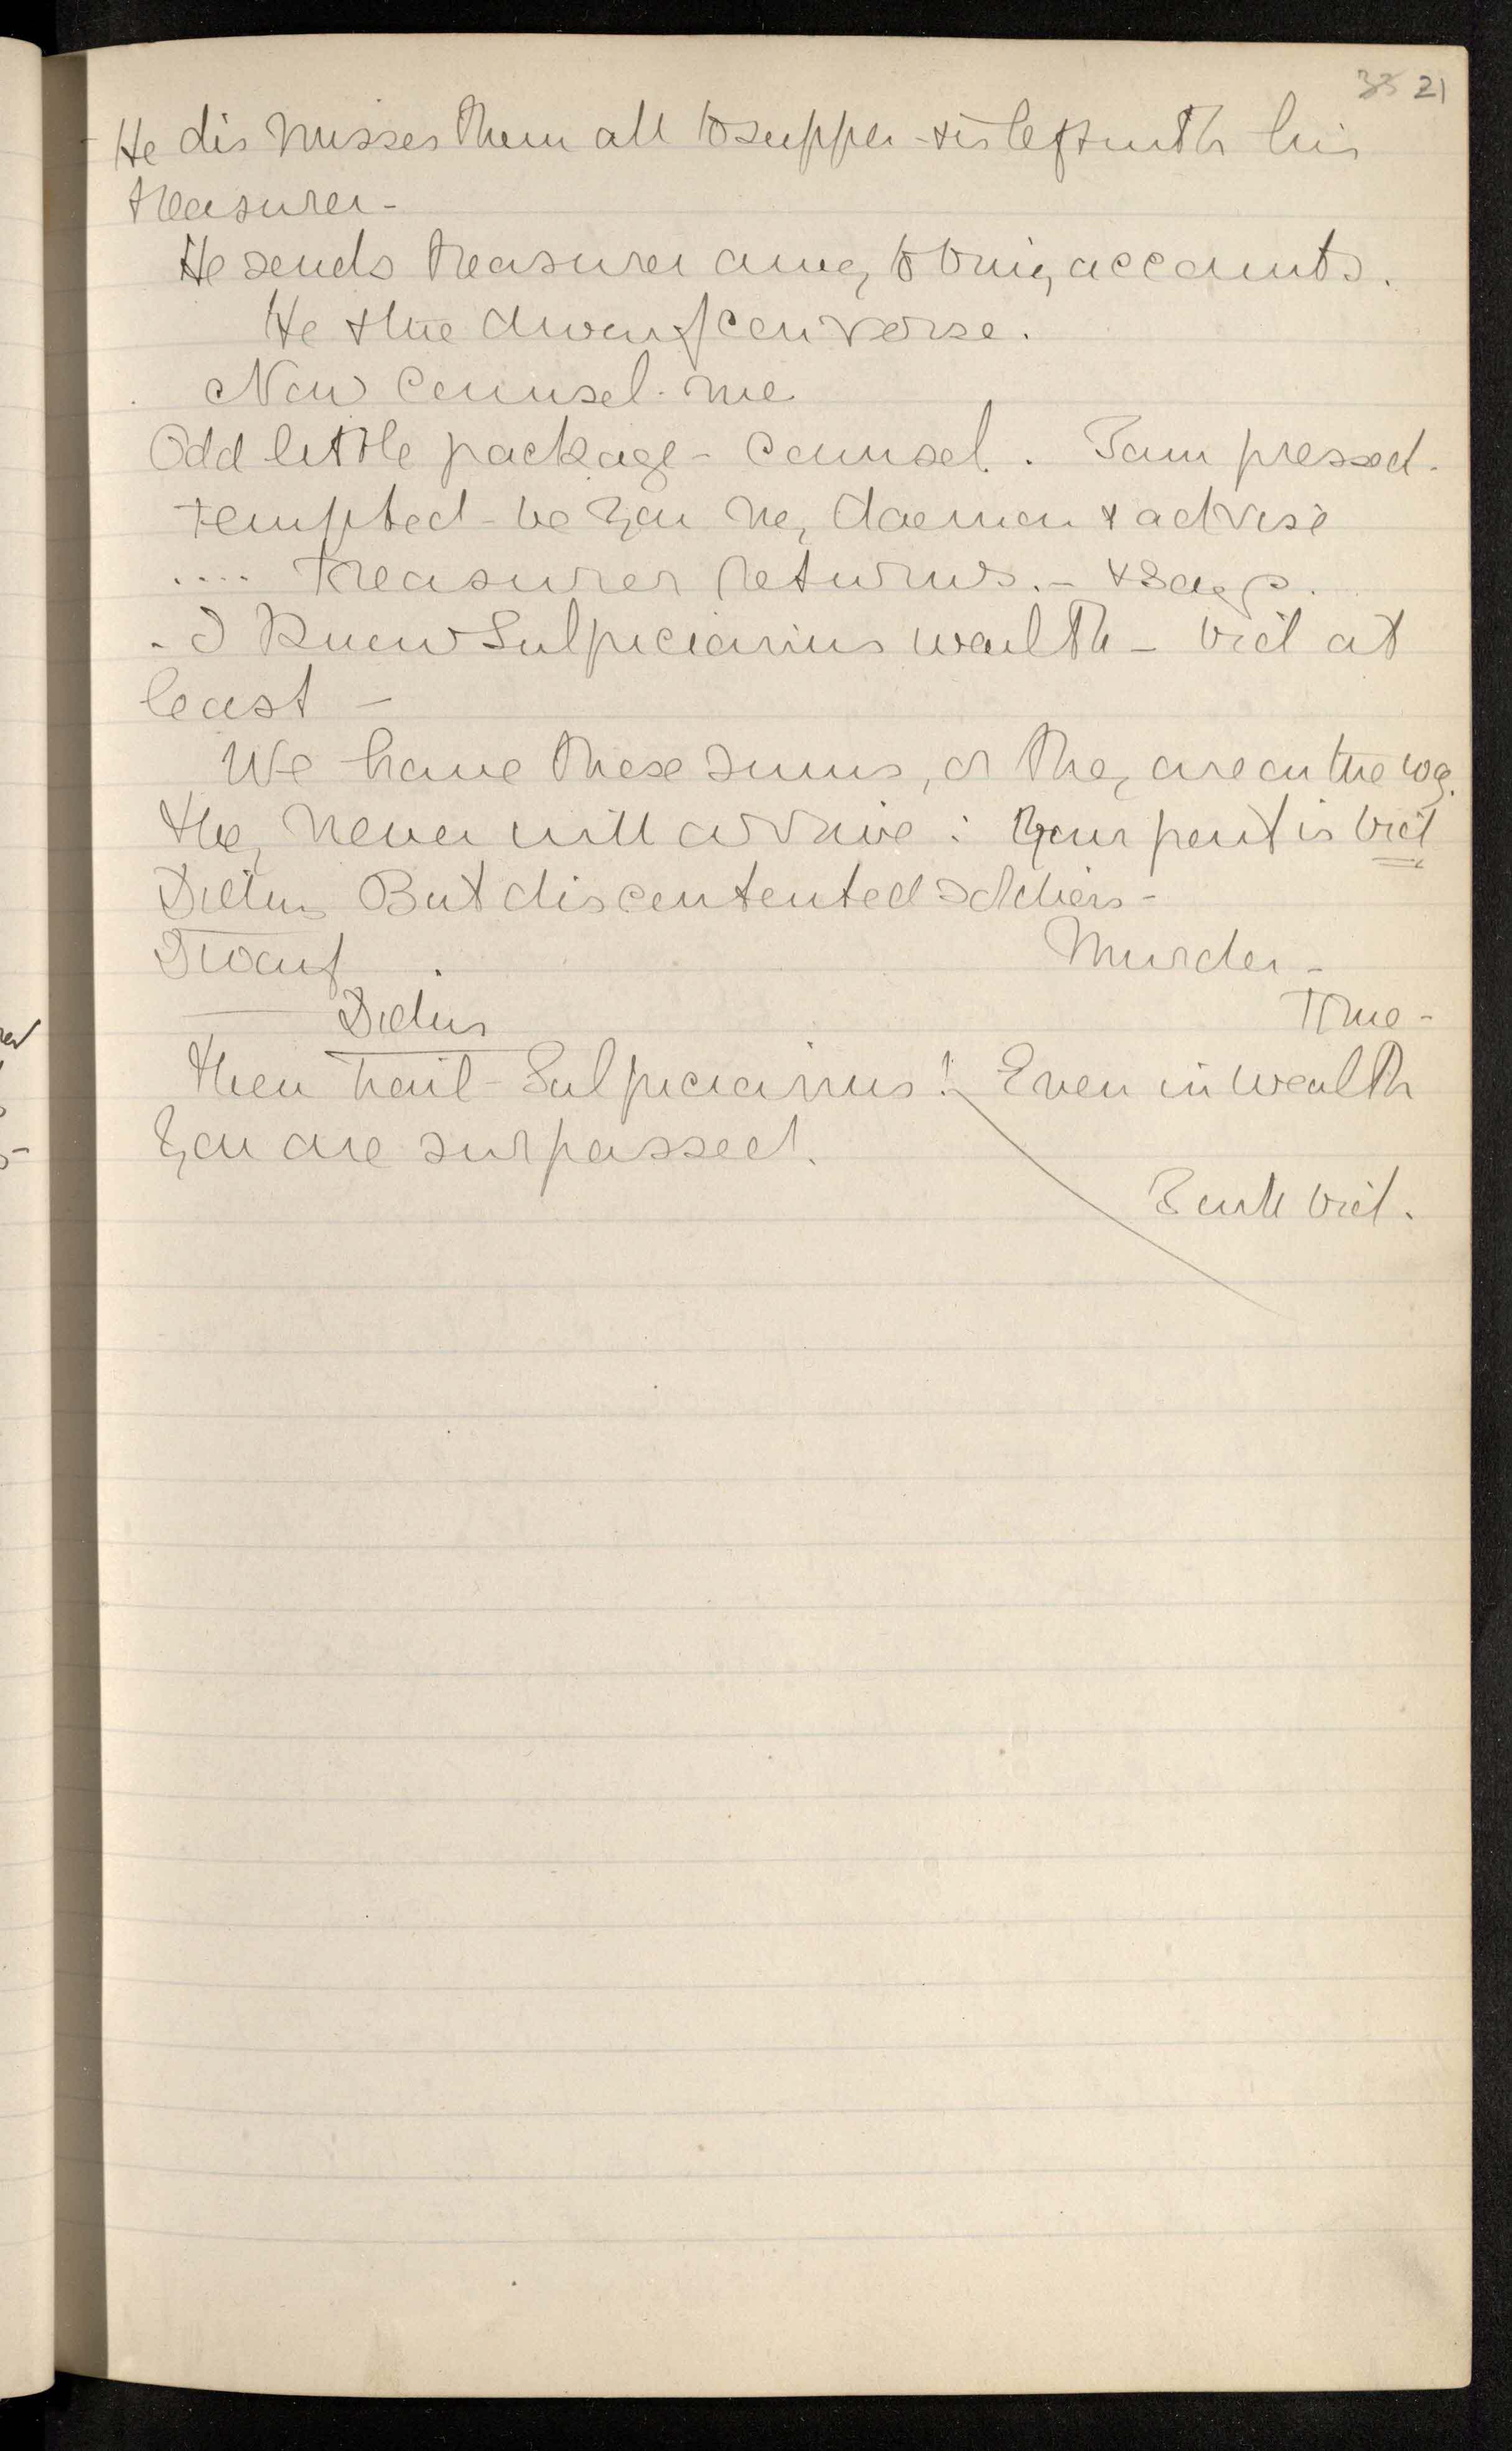 33 21
He dismisses them all to supper - & is left with his
treasurer -
He sends treasurer away to bring accounts.
He & the dwarf converse.
Now counsel me
Odd little package - counsel. I am pressed.
tempted - be you my daemon & advise
.... treasurer returns. - & says.
- I know Sulpicianius wealth - bid at
least -
We have these sums, or they are on the way.
they never will arrive: Your part is bid
Didius But discontented soldiers -
Dwarf . Murder -
Didius True -
then hail - Sulpicianius! Even in wealth
you are surpassed.
bid.